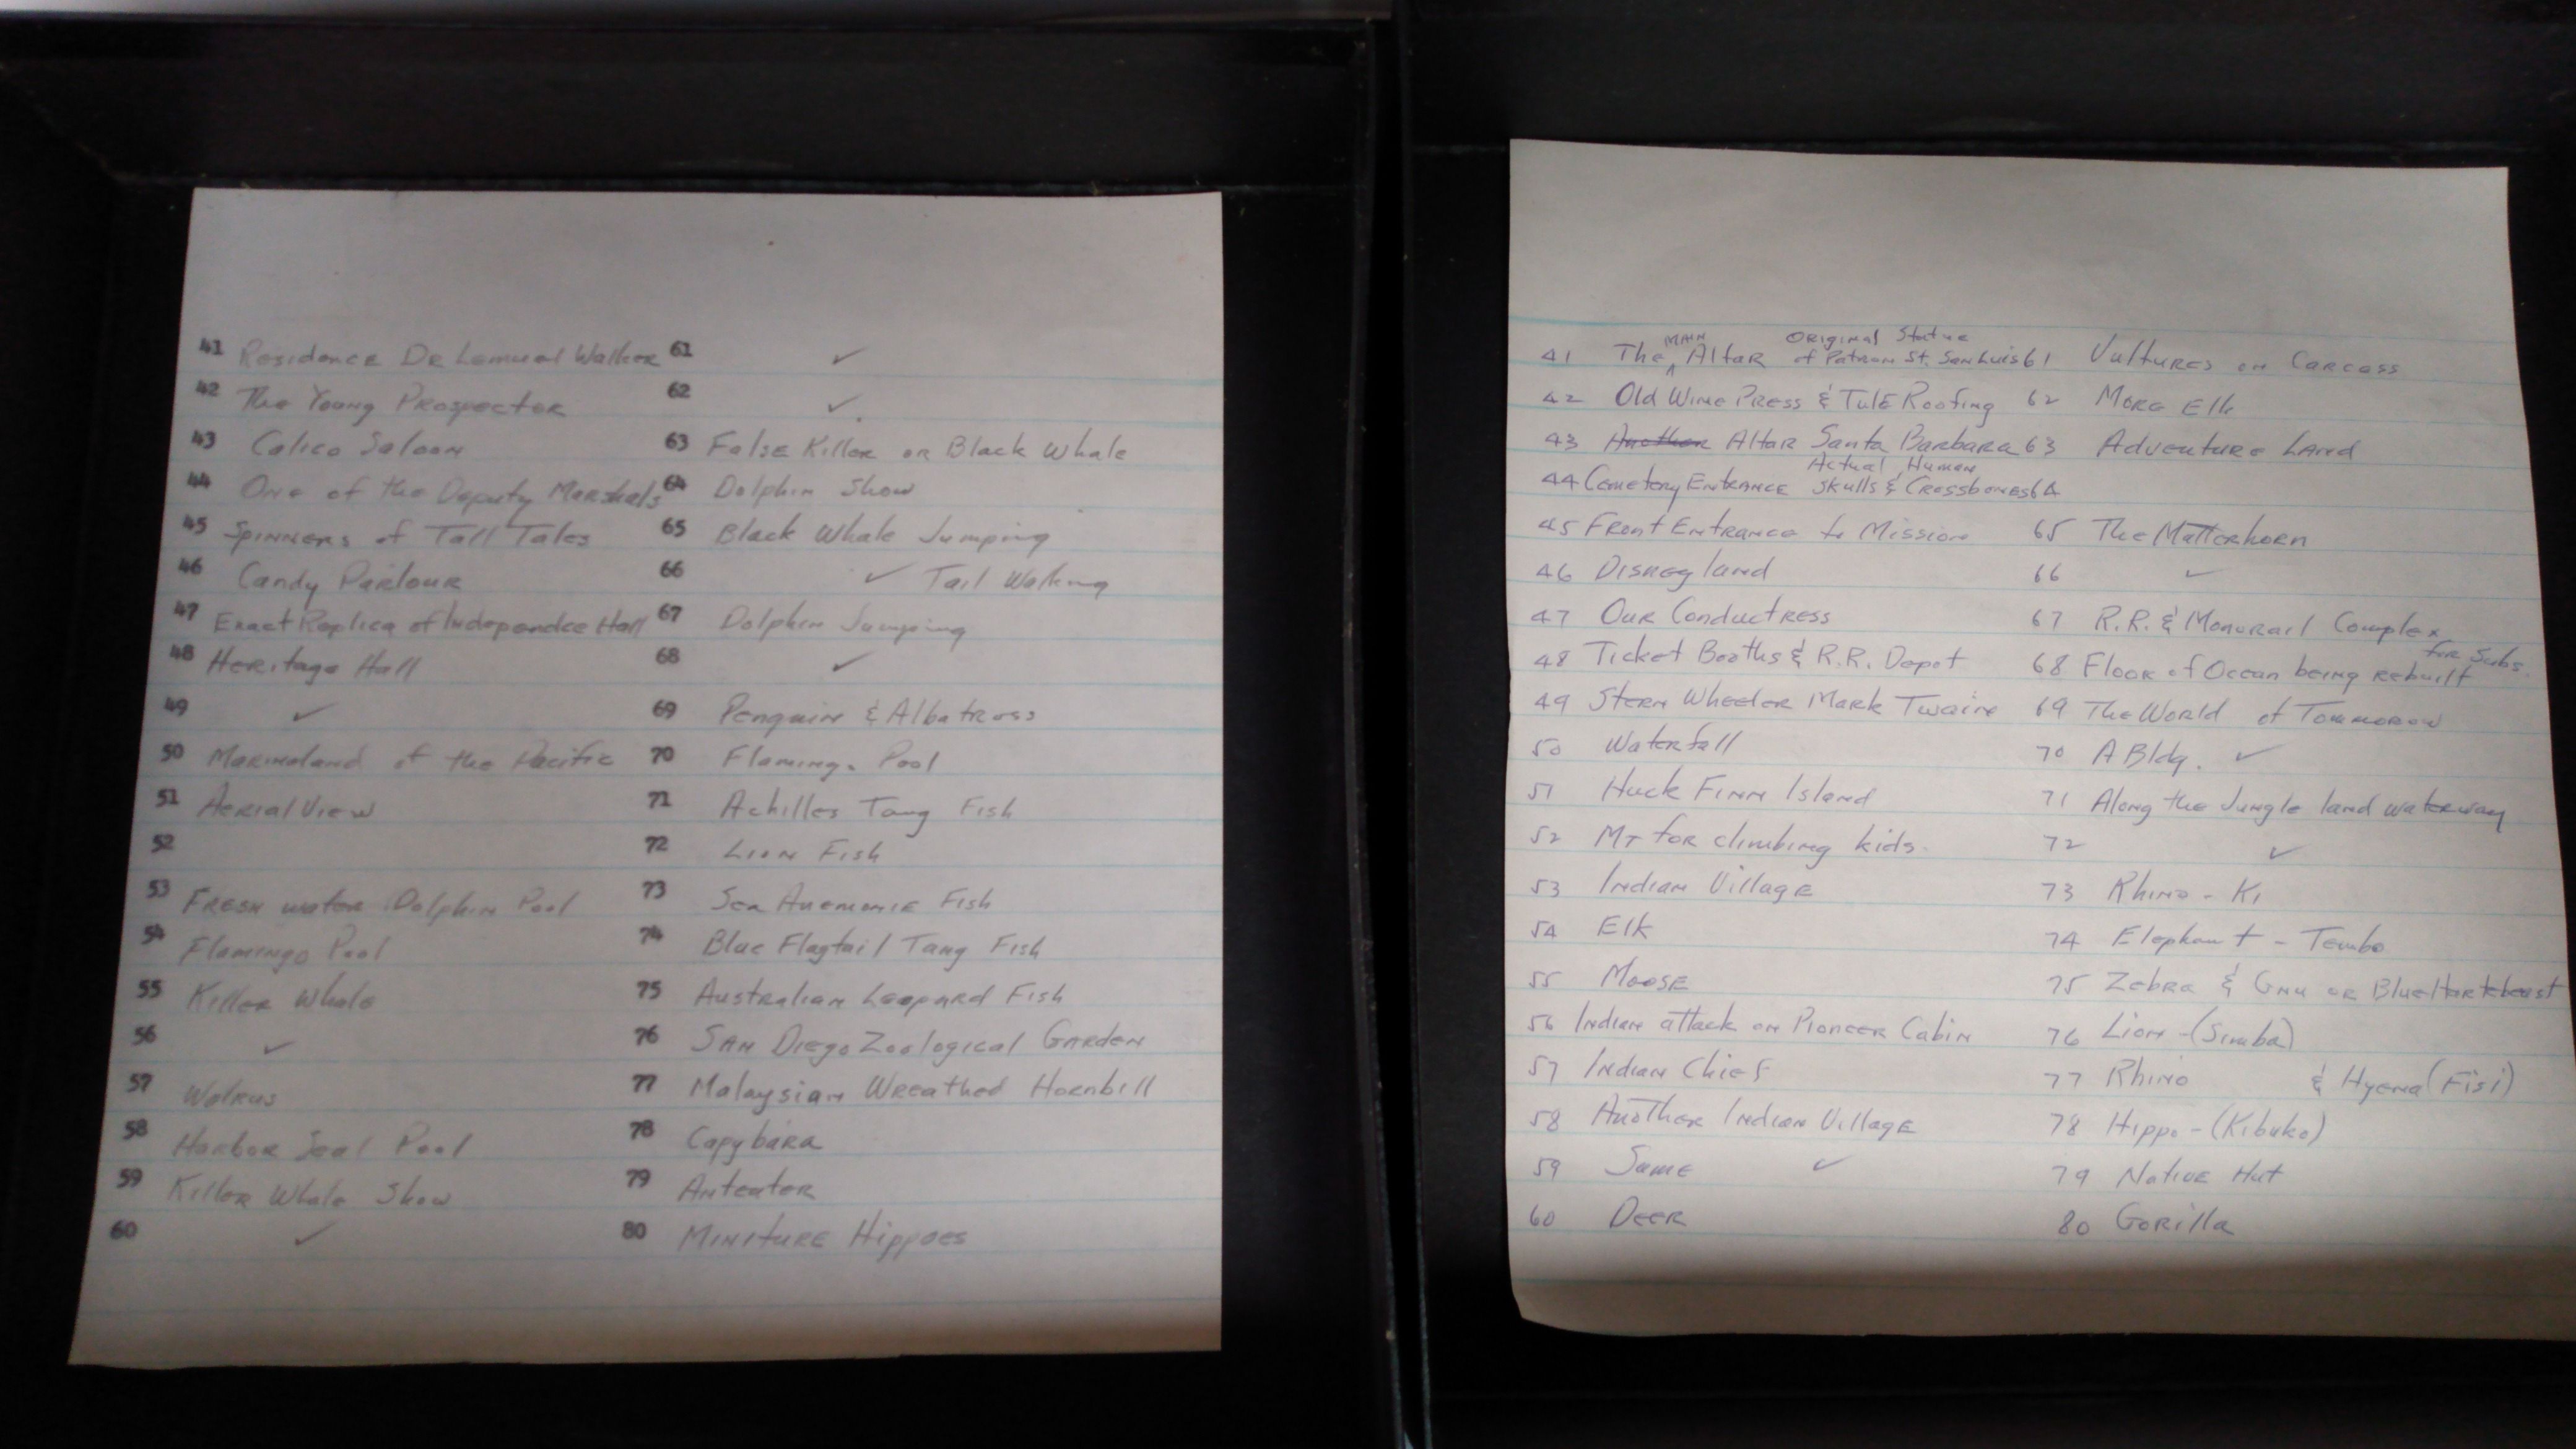 41 Residence Dr Lemual Walker 61 ✓
42 The Young Prospector 62 ✓.
43 Calico Saloon 63 False Killer or Black Whale
44 One of the Deputy Marshals 64 Dolphin Show
45 Spinners of Tall Tales 65 Black Whale Jumping
46 Candy Parlour 66 ✓ Tail Walking
47 Exact Replica of Independce Hall 67 Dolphin Jumping
48 Heritage Hall 68 ✓
49 ✓ 69 Penguin & Albatross
50 Marineland of the Pacific 70 Flamingo Pool
51 Aerial View 71 Achilles Tang Fish
52 72 Lion Fish
53 Fresh water Dolphin Pool 73 Sea Anemonie Fish
54 Flamingo Pool 74 Blue Flagtail Tang Fish
55 Killer Whale 75 Australian Leopard Fish
56 ✓ 76 San Diego Zoological Garden
57 Walrus 77 Malaysian Wreathed Hornbill
58 Harbor Seal Pool 78 Capybara
59 Killer Whale Show 79 Anteater
60 ✓ 80 Miniture Hippoes
41 The Main Altar Original Statue of Patron St. San Luis 61 Vultures on Carcass
42 Old Wine Press & Tule Roofing 62 More Elk
43 Another Altar Santa Barbara 63 Adventure Land
44 Cemetery Entrance Actual Human Skulls & Crossbones 64
45 Front Entrance to Mission 65 The Matterhorn
46 Disneyland 66 ✓
47 Our Conductress 67 R.R. & Monorail Complex
48 Ticket Booths & R.R. Depot 68 Floor of Ocean being rebuilt for Subs.
49 Stern Wheeler Mark Twain 69 The World of Tommorow
50 Waterfall 70 A Bldg. ✓
51 Huck Finn Island 71 Along the Jungle land waterway
52 Mt for climbing kids. 72 ✓
53 Indian Village 73 Rhino - Ki
54 Elk 74 Elephant - Tembo
55 Moose 75 Zebra & Gnu or Blue Hartebeast
56 Indian attack on Pioneer Cabin 76 Lion - (Simba)
57 Indian Chief 77 Rhino & Hyena (Fisi)
58 Another Indian Village 78 Hippo - (Kibuko)
59 Same ✓ 79 Native Hut
60 Deer 80 Gorilla